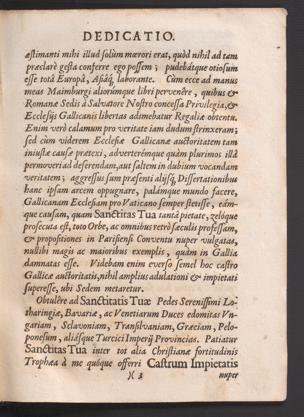 DEDICATIO.
æstimanti mihi illud solùm mœrori erat, quòd nihil ad tam
præclarè gesta conferre ego possem ; pudebátque otiosum
esse totâ Europâ, Asiâq; laborante. Cùm ecce ad manus
meas Maimburgi aliorúmque libri pervenêre , quibus &
Romanæ Sedis à Salvatore Nostro concessa Privilegia, &
Ecclesijs Gallicanis libertas adimebatur Regaliæ obtentu.
Enim verò calamum pro veritate iam dudum strinxeram;
sed cùm viderem Ecclesiæ Gallicanæ auctoritatem tam
iniustæ causæ prætexi , adverterémque quàm plurimos illâ
permoveri ad deserendam, aut saltem in dubium vocandam
veritatem ; aggressus sum præsenti alijsq́; Dissertationibus
hanc ipsam arcem oppugnare, palámque mundo facere,
Gallicanam Ecclesiam pro Vaticano semper stetisse , eám-
que causam, quam Sanctitas Tua tantâ pietate , zelóque
prosecuta est, toto Orbe, ac omnibus retrò sæculis professam,
& propositiones in Parisiensi Conventu nuper vulgatas,
nullibi magis ac maioribus exemplis , quàm in Gallia
damnatas esse. Videbam enim everso semel hoc castro
Gallicæ auctoritatis, nihil amplius adulationi & impietati
superesse, ubi Sedem metaretur.
Obtulêre ad Sanctitatis Tuæ Pedes Serenissimi Lo-
tharingiæ, Bavariæ , ac Venetiarum Duces edomitas Vn-
gariam , Sclavoniam , Transilvaniam , Græciam , Pelo-
ponesum , aliásque Turcici Imperij Provincias. Patiatur
Sanctitas Tua inter tot alia Christianæ fortitudinis
Trophæa à me quóque offerri Castrum Impietatis
)( 3 nuper